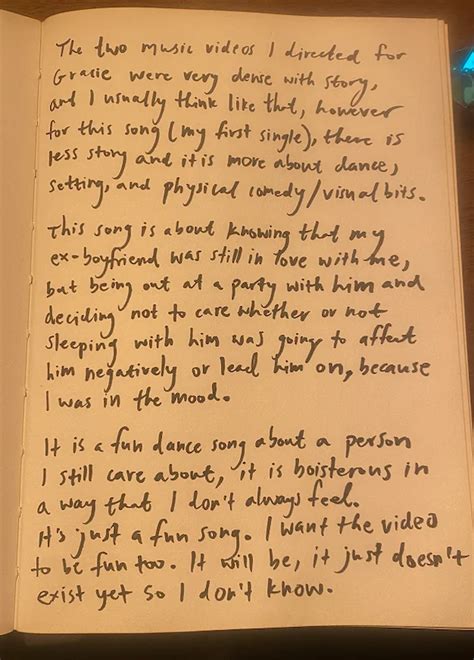 The two music videos I directed for
Gracie were very dense with story,
and I usually think like that, however
for this song (my first single), there is
less story and it is more about dance,
setting, and physical comedy/visual bits.
This song is about knowing that my
ex-boyfriend was still in love with me,
but being out at a party with him and
deciding not to care whether or not
sleeping with him was going to affect
him negatively or lead him on, because
I was in the mood.
It is a fun dance song about a person
I still care about, it is boisterous in
a way that I don't always feel.
It's just a fun song. I want the video
to be fun too. It will be, it just doesn't
exist yet so I don't know.